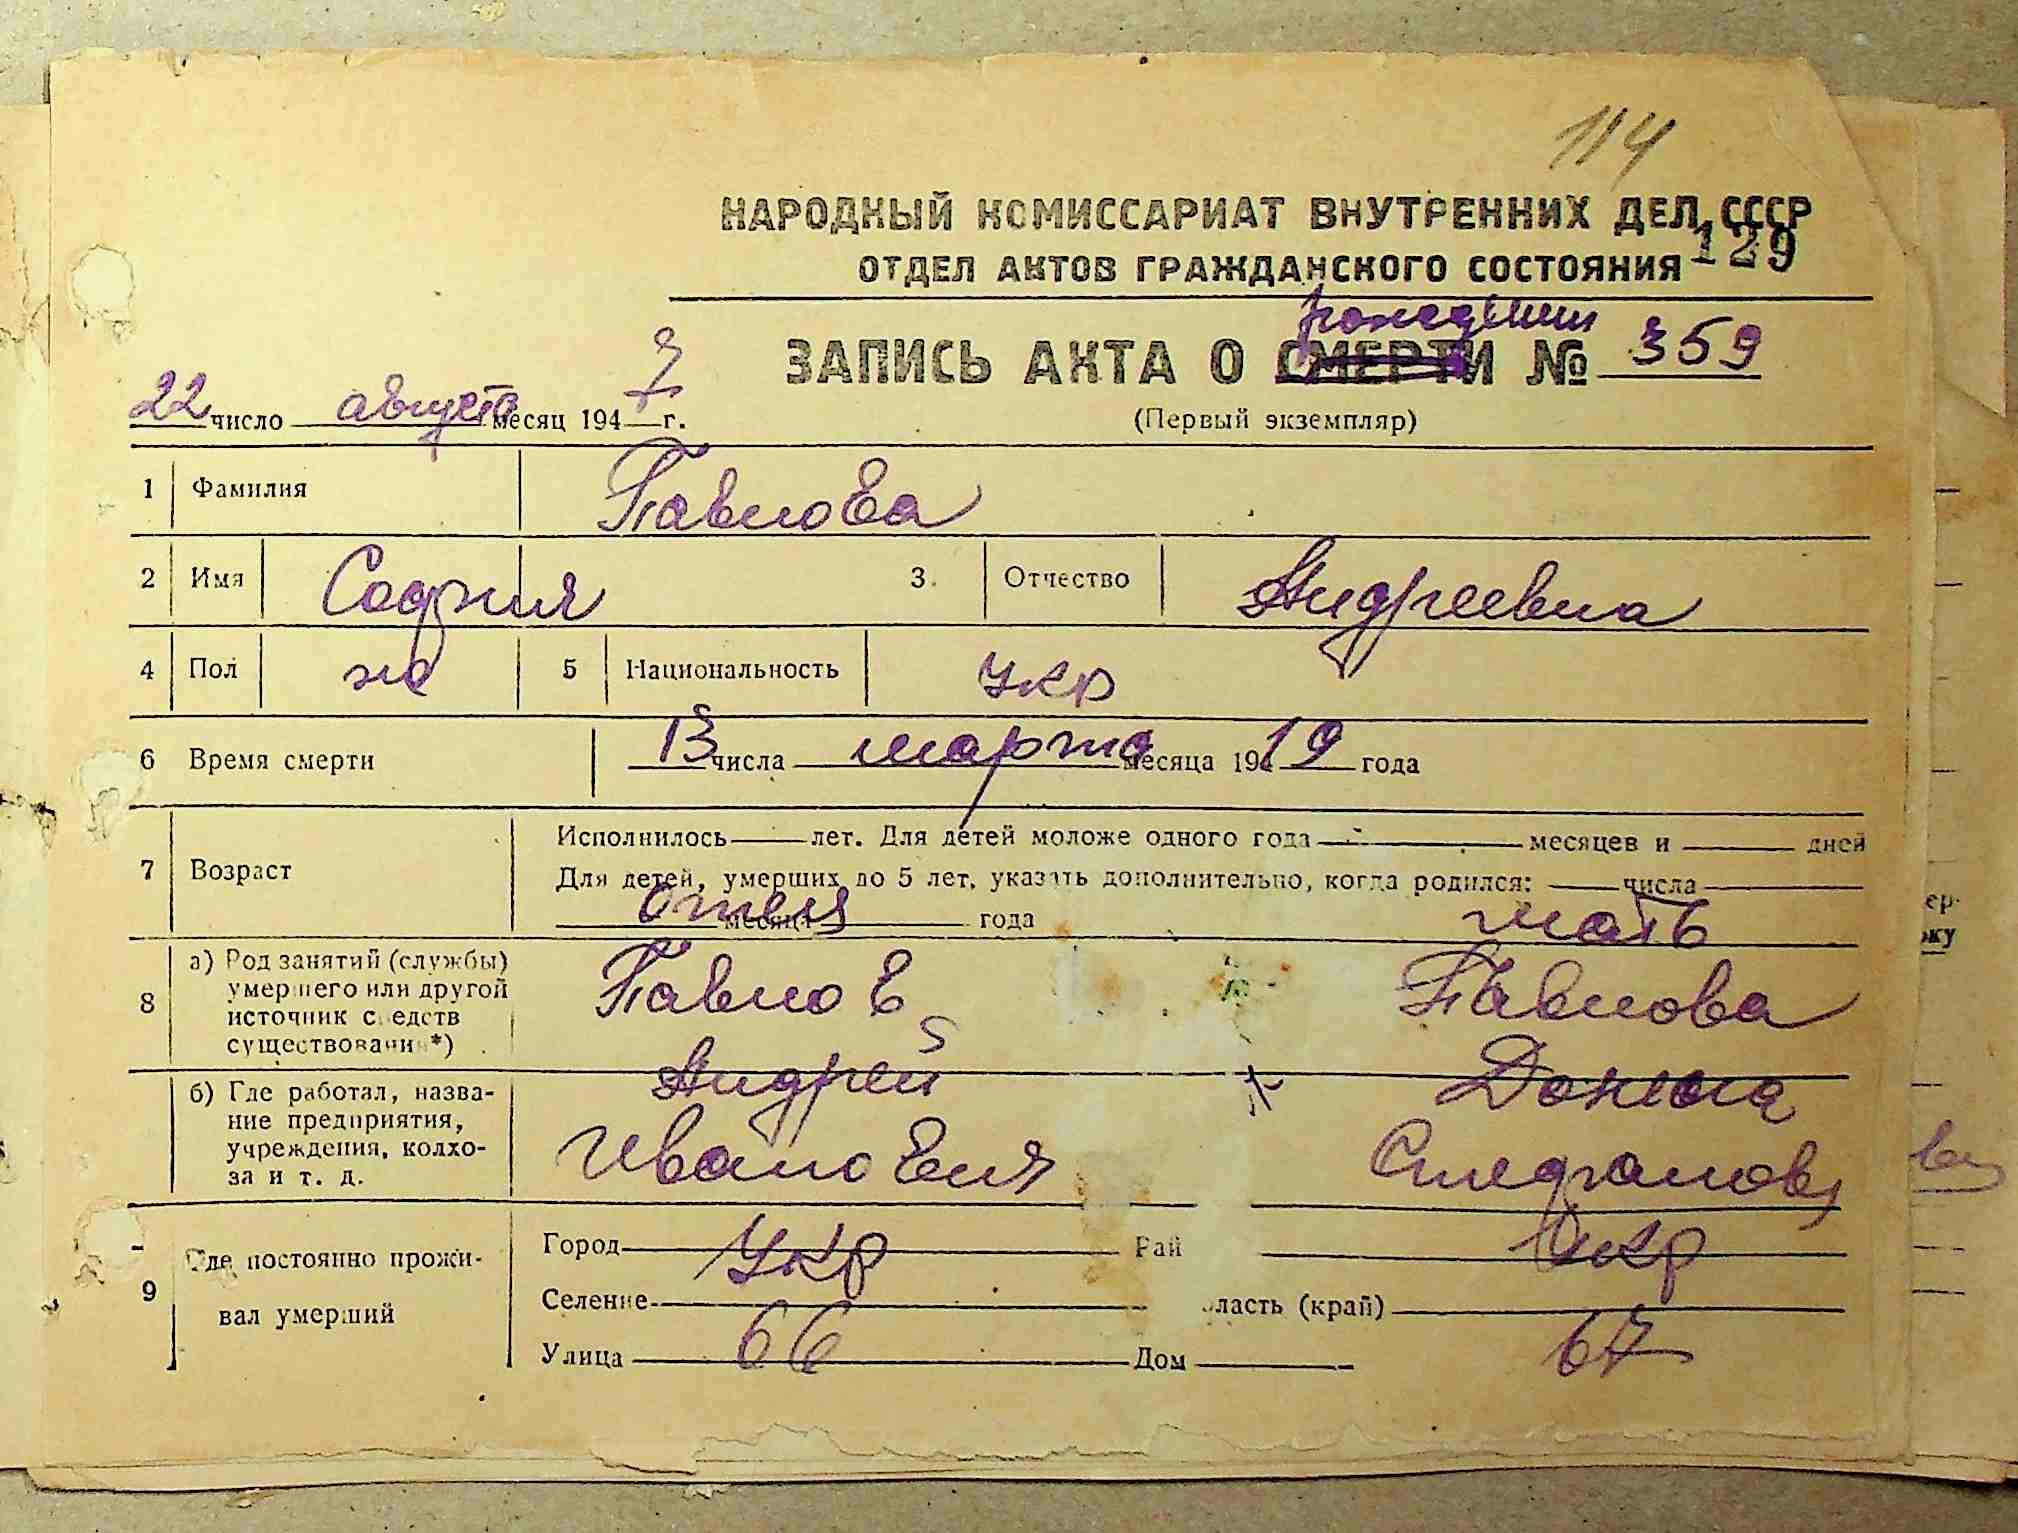 114
НАРОДНЫЙ КОМИССАРИАТ ВНУТРЕННИХ ДЕЛ СССР
ОТДЕЛ АКТОВ ГРАЖДАНСКОГО СОСТОЯНИЯ 129
рождении
ЗАПИСЬ АКТА О СМЕРТИ № 359
22 число августа месяц 1947 г.
(Первый экземпляр)
1 Фамилия Павлова
2 Имя София 3. Отчество Андреевна
4 Пол ж 5 Национальность укр
6 Время смерти 13 числа марта месяца 1919 года
7 Возраст
Исполнилось лет. Для детей моложе одного года месяцев и дней
Для детей, умерших до 5 лет, указать дополнительно, когда родился: числа
месяца года
Отец мать
8 а) Род занятий (службы) умершего или другой источник средств существования*)
Павлов Павлова
б) Где работал, назва-
ние предприятия,
учреждения, колхо-
за и т. д.
Андрей
Иванович Степанов
9 Где постоянно прожи-
вал умерший
Город укр Рай укр
Селение ласть (край)
Улица 66 Дом 67